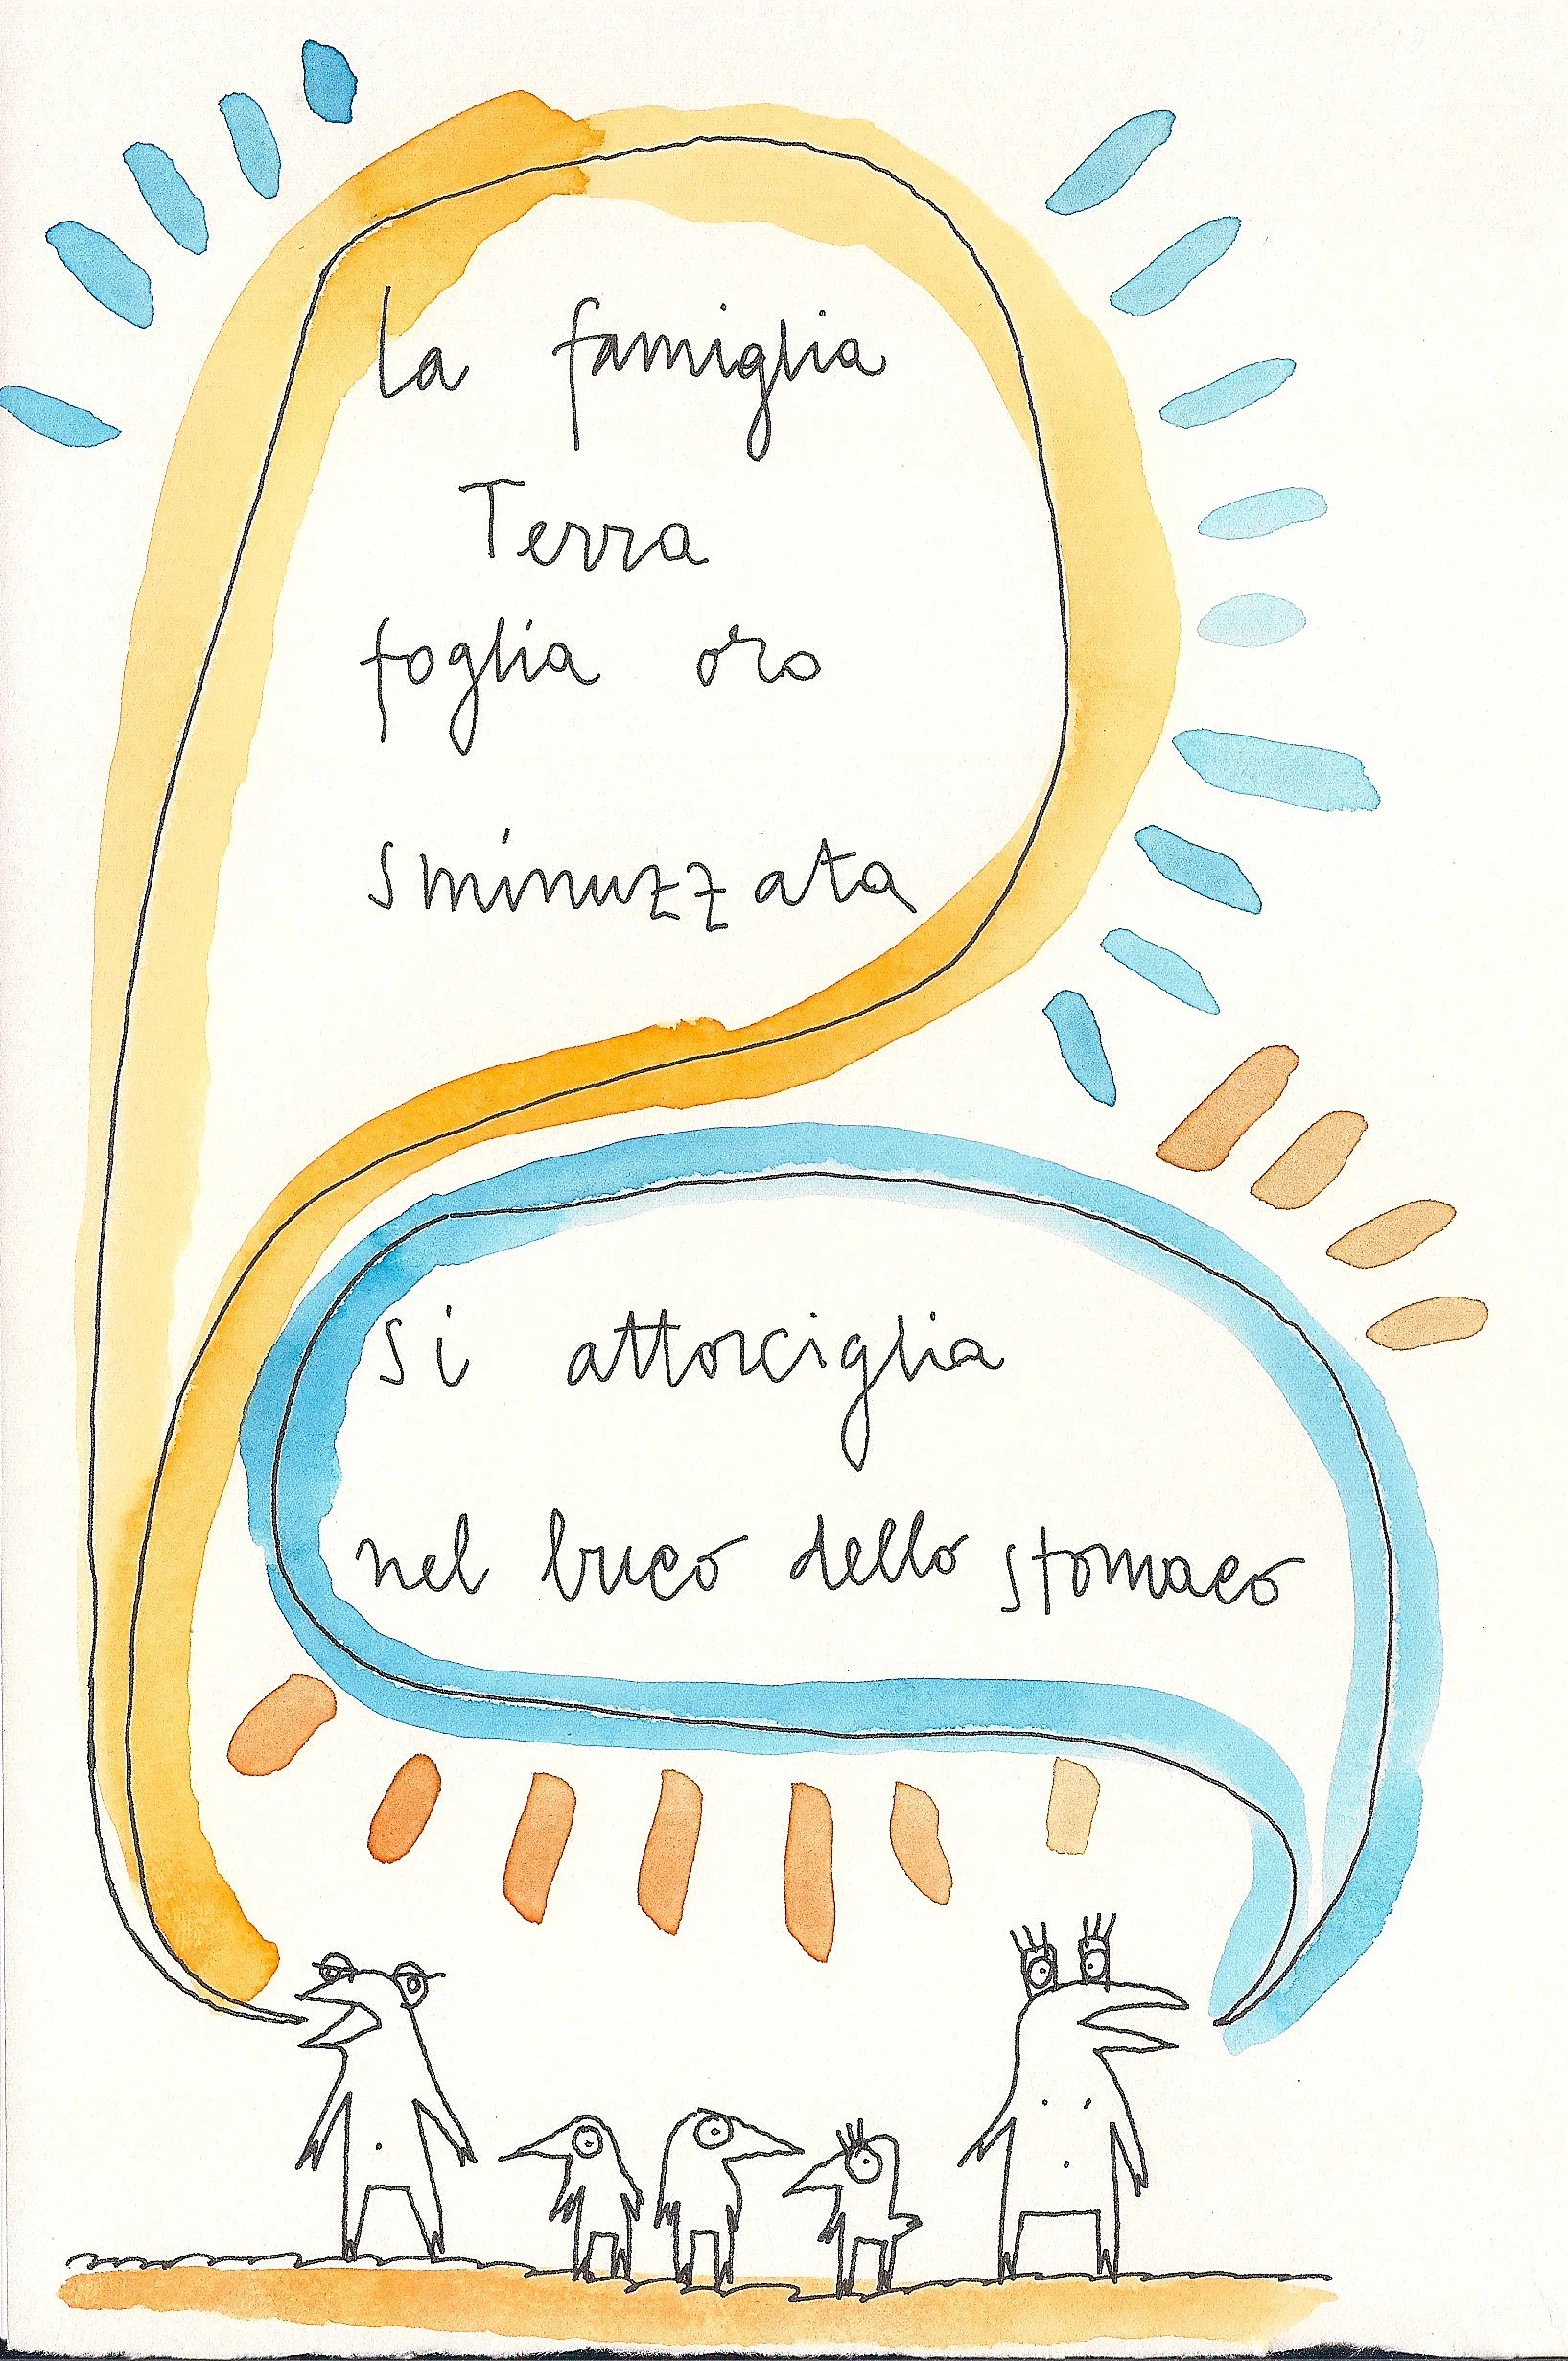 La famiglia
Terra
foglia oro
sminuzzata
si attorciglia
nel buco dello stomaco